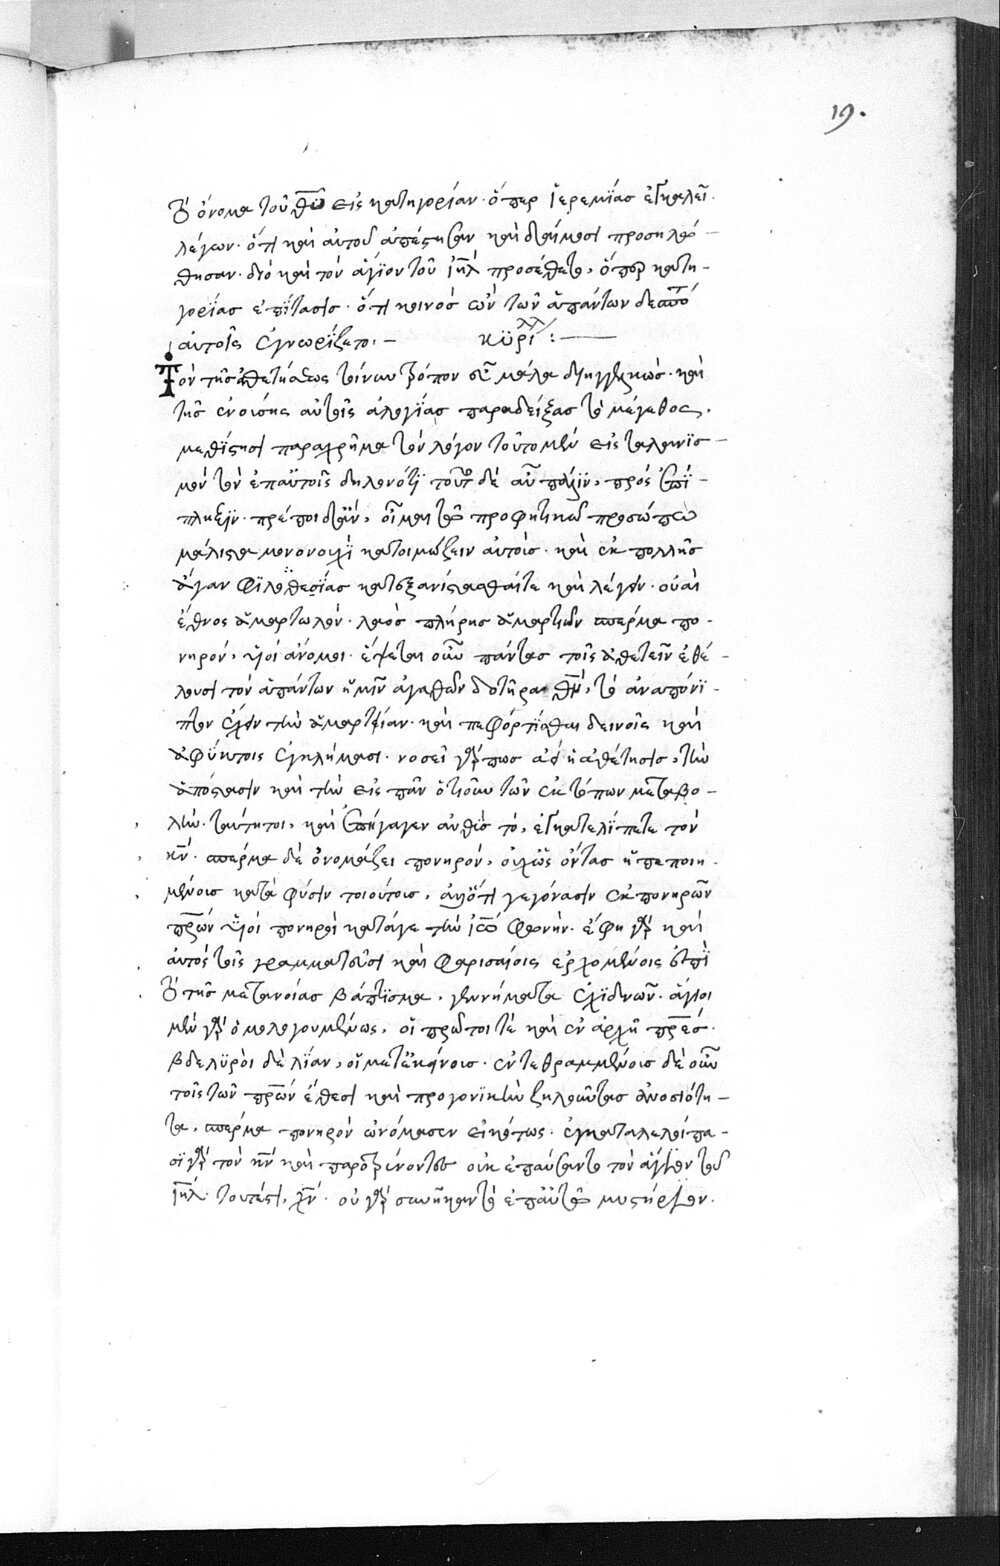 19.
τὸ ὄνομα τοῦ θῡ εἰς κατηγορίαν· ὅπερ ἱερεμΐας ἐγκαλεῖ.
λέγων· ὅτι καὶ αὐτοῦ ἀπέστησαν καὶ δαίμοσι προσηλώ–
θησαν· διὸ καὶ τὸν ἅγϊον τοῦ ἰη̄λ προσέθετο, ὅπερ κατη–
γορΐας ἐπΐτασις· ὅτι κοινὸς ὢν τῶν ἁπάντων δεσπό
αὐτοῖς ἐγνωρΐζετο:– κϋρίλλ :——
Τὸν τῆς ἀθετήσεως τοίνυν τρόπον εὖ μάλα διηγγελκὼς· καὶ
τῆς ἐνούσης αὐτοῖς ἀλογΐας παραδείξας τὸ μέγεθος,
μεθΐστησι παραχρῆμα τὸν λόγον τοῦτο μὲν εἰς ταλανϊσ–
μὸν τὸν ἐπ αὐτοῖς δηλονότϊ τοῦτο δὲ αὖ πάλϊν, πρὸς ἐπΐ–
πληξϊν· πρέποι δ ἂν, οἶμαι τῶ προφητικῶ προσώπω
μάλιστα μονονουχΐ κατοιμώζειν αὐτοὺς· καὶ ἐκ πολλῆς
ἄγαν φϊλοθεΐας κατεξανίστασθαί τε καὶ λέγειν· οὐαὶ
ἔθνος ἁμαρτωλόν· λαὸς πλήρης ἁμαρτιῶν σπέρμα πο–
νηρόν, υἱοὶ ἄνομοι· ἕψεται οὖν πάντας τοῖς ἀθετεῖν ἐθέ–
λουσι τὸν ἁπάντων ἡμῖν ἀγαθῶν δοτῆρα θν̄, τὸ ἀναπόνϊ–
πτον ἔχειν τὴν ἁμαρτΐαν· καὶ πεφορτΐσθαι δεινοῖς καὶ
ἀφΰκτοις ἐγκλήμασι· νοσεῖ γάρ πως ἀεὶ ἡ ἀθέτησις, τὴν
ἀπόστασιν καὶ τὴν εἰς πᾶν ὁτιοῦν τῶν ἐκτόπων μεταβο–
λὴν· ταύτητοι, καὶ ἐπήγαγεν αὐθΐς τό, ἐγκατελΐπετε τὸν
κν̄· σπέρμα δὲ ὀνομάζει πονηρόν, οὐχ ὡς ὄντας ἢ πεποιη–
μένους κατὰ φύσιν τοιούτους, ἀλλ' ὅτι γεγόνασιν ἐκ πονηρῶν
πρ̄ων υἱοὶ πονηροὶ κατάγε τὴν ἰω̄ φωνὴν· ἔφη γὰρ καὶ
αὐτὸς τοῖς γραμματεῦσι καὶ φαρισαίοις ἐρχομένοις ἐπὶ
τὸ τῆς μετανοίας βάπτϊσμα, γεννήματα ἐχϊδνῶν· ἅγιοι
μὲν γὰρ ὁμολογουμένως, οἱ πρῶτοι τὲ καὶ ἐν ἀρχῆ πρ̄ες·
βδελϋροὶ δὲ λΐαν, οἱ μετ ἐκείνους· ἐντεθραμμένους δὲ οὖν
τοῖς τῶν πρ̄ων ἔθεσι καὶ προγονϊκὴν ζηλοῦντας ἀνοσιότη–
τα, σπέρμα πονηρὸν ὠνόμασεν εἰκότως· ἐγκαταλελοίπα–
σϊ γὰρ τὸν κν̄ καὶ παροξύνοντες οὐκ ἐπαύσαντο τὸν ἅγιον τοῦ
ἰη̄λ· τουτέστι, χν̄· οὐ γὰρ συνῆκαν τὸ ἐπ αὐτῶ μυστήριον.